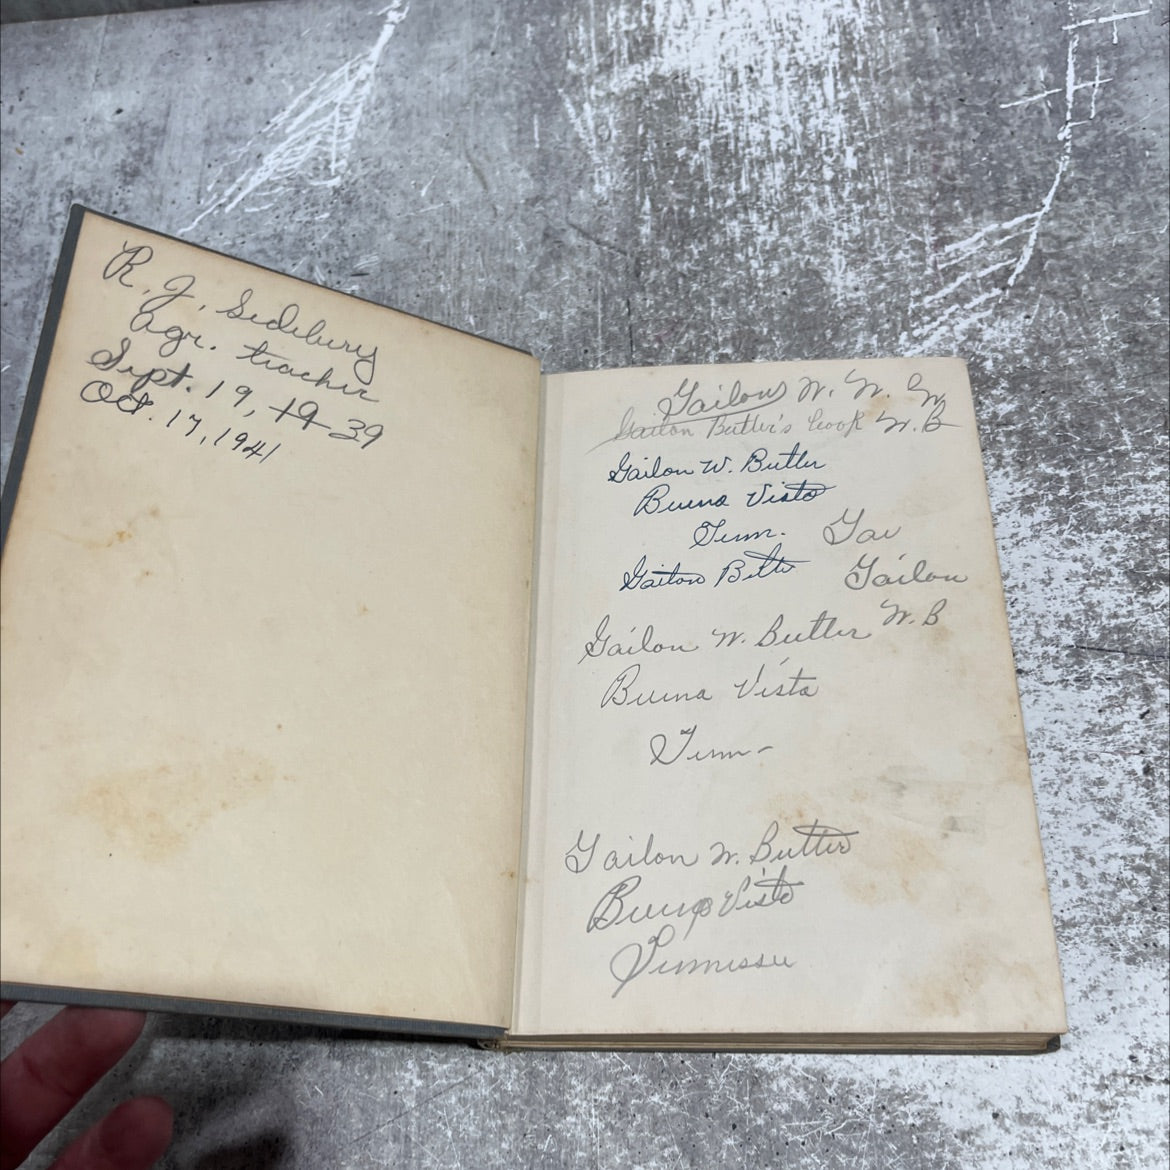 R. J. Sedebury
agr. teacher
Sept. 19, 1939
Oct. 17, 1941
Gailon W. W. W
Gailon Butler's book W.B
Gailon W. Butler
Buena Vista
Tenn.
Gai
Gailon Butler
Gailon
Gailon W. Butler W.B
Buena Vista
Tenn-
Gailon W. Butler
Buena Vista
Tennessee